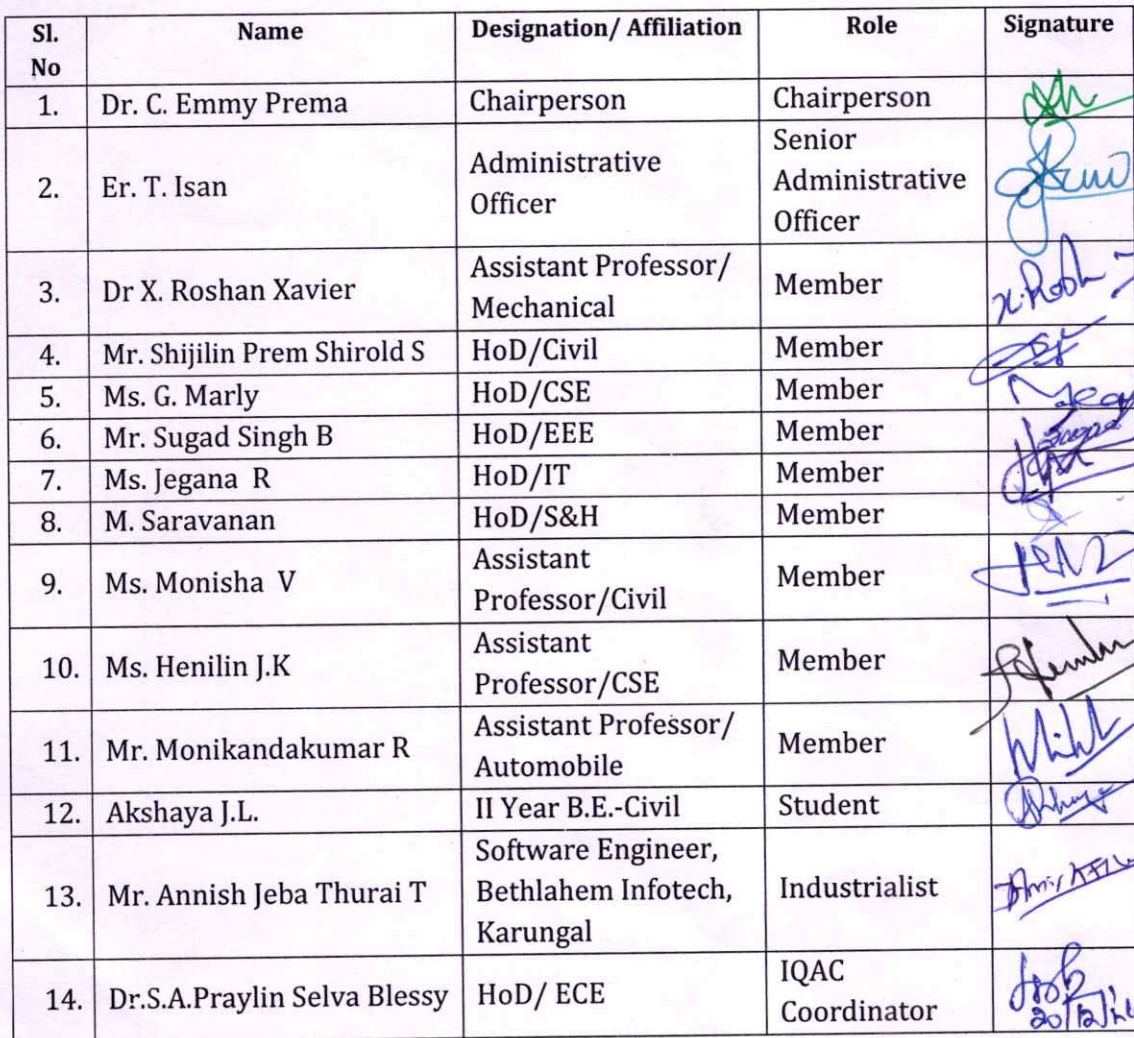 Sl. No Name Designation/ Affiliation Role Signature
1. Dr. C. Emmy Prema Chairperson Chairperson
2. Er. T. Isan Administrative Officer Senior Administrative Officer
3. Dr X. Roshan Xavier Assistant Professor/ Mechanical Member
4. Mr. Shijilin Prem Shirold S HoD/Civil Member
5. Ms. G. Marly HoD/CSE Member
6. Mr. Sugad Singh B HoD/EEE Member
7. Ms. Jegana R HoD/IT Member
8. M. Saravanan HoD/S&H Member
9. Ms. Monisha V Assistant Professor/Civil Member
10. Ms. Henilin J.K Assistant Professor/CSE Member
11. Mr. Monikandakumar R Assistant Professor/ Automobile Member
12. Akshaya J.L. II Year B.E.-Civil Student
13. Mr. Annish Jeba Thurai T Software Engineer, Bethlahem Infotech, Karungal Industrialist
14. Dr.S.A.Praylin Selva Blessy HoD/ ECE IQAC Coordinator